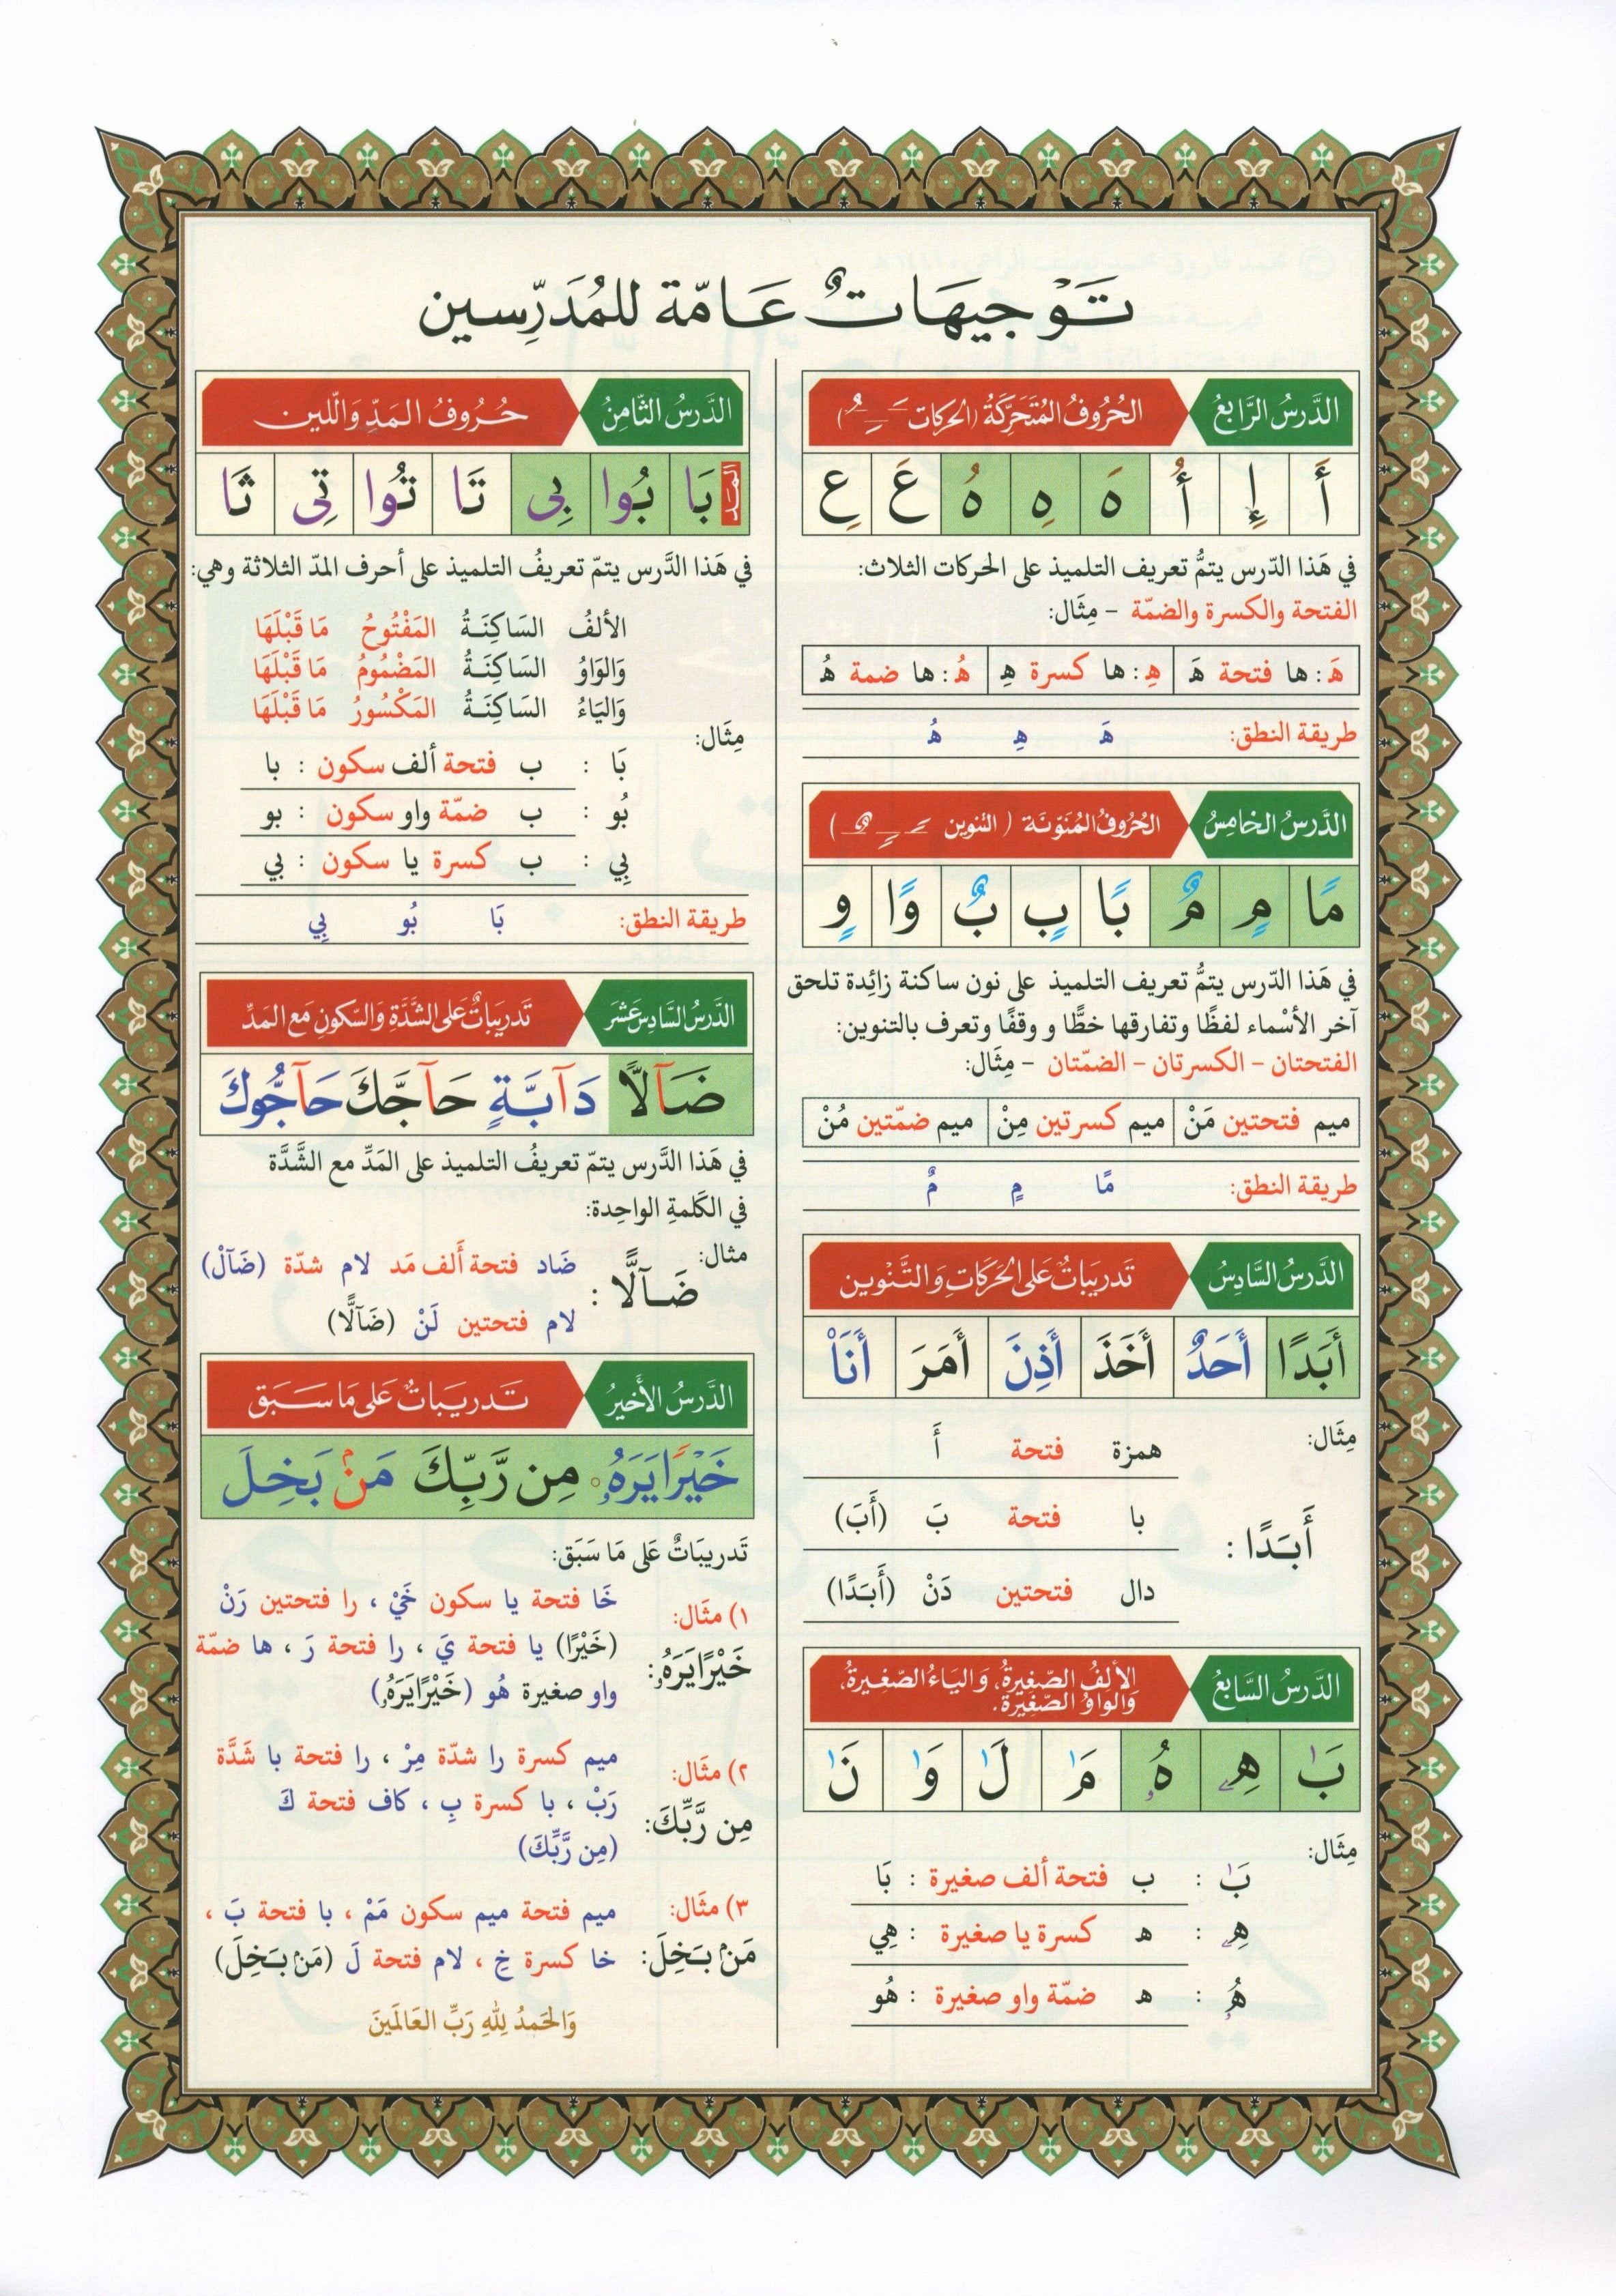 تَوْجِيهَاتٌ عَامّة للمُدَرِّسين
الدَّرسُ الرَّابعُ
الحُرُوفُ المُتَحَرِّكَةُ (الحركات ـَ ـِ ـُ)
أَ إِ أُ هَ هِ هُ عَ عِ
في هَذا الدّرس يتمُّ تعريف التلميذ على الحركات الثلاث:
الفتحة والكسرة والضمّة - مِثَال:
هَ: ها فتحة هَ هِ: ها كسرة هِ هُ: ها ضمة هُ
طريقة النطق: هَ هِ هُ
الدَّرسُ الخامِسُ
الحُرُوفُ المُنَوّنَة ( التنوين ـً ـٍ ـٌ )
مًا مٍ مٌ بًا بٍ بٌ وًا وٍ
في هَذا الدّرس يتمُّ تعريف التلميذ على نون ساكنة زائِدة تلحق
آخر الأسْماء لفظًا وتفارقها خطًّا و وقفًا وتعرف بالتنوين:
الفتحتان - الكسرتان - الضمّتان - مِثَال:
ميم فتحتين مَنْ ميم كسرتين مِنْ ميم ضمّتين مُنْ
طريقة النطق: مًا مٍ مٌ
الدَّرسُ السَّادِسُ
تَدرِيَباتٌ عَلى الحَرَكَاتِ وَالتَّنْوين
أَبَدًا أَحَدٌ أَخَذَ أَذِنَ أَمَرَ أَنَا۠
مِثَال:
همزة فتحة أَ
أَبَدًا :
با فتحة بَ (أَبَ)
دال فتحتين دَنْ (أَبَدًا)
الدَّرسُ السَّابعُ
الألِفُ الصّغِيرةُ، وَاليَاءُ الصّغِيرةُ،
وَالواوُ الصّغِيرَة.
بَٰ هِۦ هُۥ مَٰ لَٰ وَٰ نَٰ
مِثَال:
بَٰ : ب فتحة ألف صغيرة : بَا
هِۦ : ه كسرة يا صغيرة : هِي
هُۥ : ه ضمّة واو صغيرة : هُو
الدَّرسُ الثّامِنُ
حُرُوفُ المَدِّ وَاللّين
المد
بَا بُوا بِي تَا تُوا تِي ثَا
في هَذا الدَّرس يتمّ تعريفُ التلميذ على أحرف المدّ الثلاثة وهي:
الألفُ السَاكِنَةُ المَفْتُوحُ مَا قَبْلَهَا
وَالوَاوُ السَاكِنَةُ المَضْمُومُ مَا قَبْلَهَا
وَاليَاءُ السَاكِنَةُ المَكْسُورُ مَا قَبْلَهَا
مِثَال:
بَا : ب فتحة ألف سكون : با
بُو : ب ضمّة واو سكون : بو
بِي : ب كسرة يا سكون : بي
طريقة النطق: بَا بُو بِي
الدَّرسُ السَّادِسَ عَشَرَ
تَدرِيبَاتٌ عَلى الشَّدَّةِ وَالسّكونِ مَع المَدِّ
ضَآلًّا دَآبَّةٍ حَآجَّكَ حَآجُّوكَ
في هَذا الدَّرس يتمّ تعريفُ التلميذ على المَدِّ مع الشَّدَّة
في الكَلمةِ الواحِدة:
مثال:
ضَآلًّا :
ضَاد فتحة أَلف مَد لام شدّة (ضَآلْ)
لام فتحتين لَنْ (ضَآلًّا)
الدَّرسُ الأَخيرُ
تَدرِيَباتٌ عَلى مَا سَبَق
خَيْرًا يَرَهُۥ مِن رَّبِّكَ مَنۢ بَخِلَ
تَدريبَاتٌ عَلى مَا سَبَق:
١) مثَال:
خَيْرًا يَرَهُۥ:
خَا فتحة يا سكون خَيْ ، را فتحتين رَنْ
(خَيْرًا) يا فتحة يَ ، را فتحة رَ ، ها ضمّة
واو صغيرة هُو (خَيْرًا يَرَهُۥ)
٢) مثَال:
مِن رَّبِّكَ:
ميم كسرة را شدّة مِرْ ، را فتحة با شَدَّة
رَبْ ، با كسرة بِ ، كاف فتحة كَ
(مِن رَّبِّكَ)
٣) مثَال:
مَنۢ بَخِلَ:
ميم فتحة ميم سكون مَمْ ، با فتحة بَ ،
خا كسرة خِ ، لام فتحة لَ (مَنۢ بَخِلَ)
وَالحَمدُ لِلّٰهِ رَبِّ العَالَمَينَ